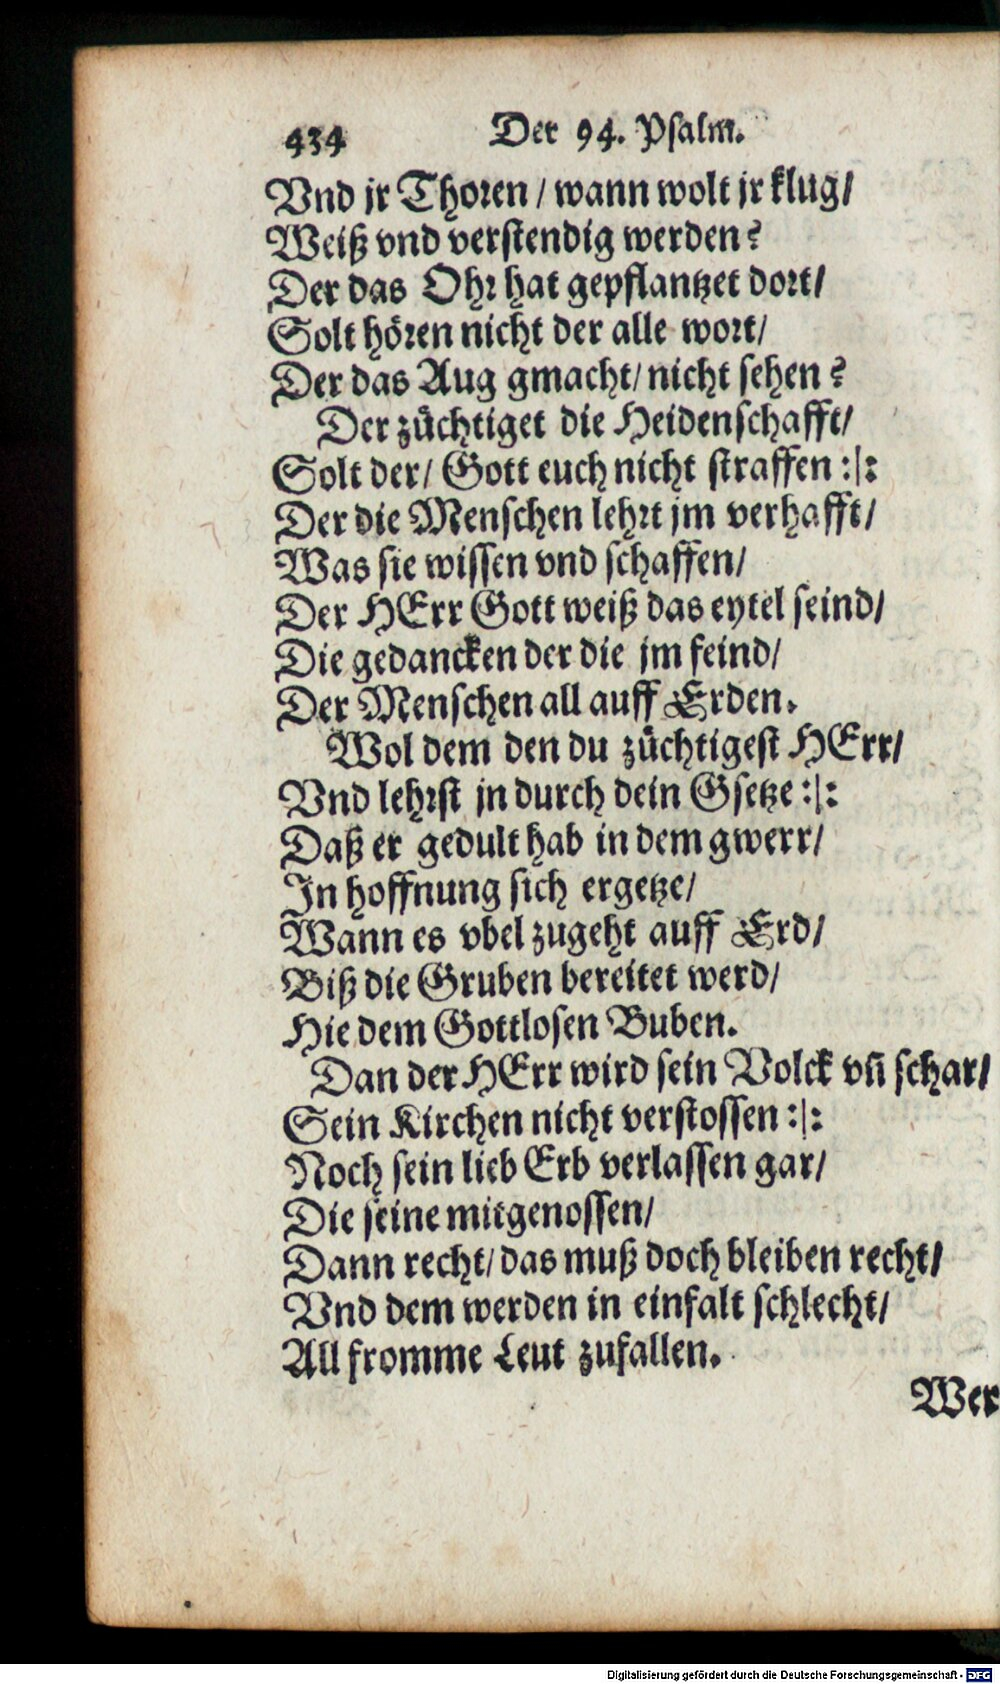 434 Der 94. Psalm.
Vnd jr Thoren / wann wolt jr klug/
Weiß vnd verstendig werden?
Der das Ohr hat gepflantzet dort/
Solt hören nicht der alle wort/
Der das Aug gmacht/ nicht sehen?
Der züchtiget die Heidenschafft/
Solt der/ Gott euch nicht straffen :|:
Der die Menschen lehrt jm verhafft/
Was sie wissen vnd schaffen/
Der HErr Gott weiß das eytel seind/
Die gedancken der die jm feind/
Der Menschen all auff Erden.
Wol dem den du züchtigest HErr/
Vnd lehrst jn durch dein Gsetze :|:
Daß er gedult hab in dem gwerr/
In hoffnung sich ergetze/
Wann es vbel zugeht auff Erd/
Biß die Gruben bereitet werd/
Hie dem Gottlosen Buben.
Dan der HErr wird sein Volck vñ schar/
Sein Kirchen nicht verstossen :|:
Noch sein lieb Erb verlassen gar/
Die seine mitgenossen/
Dann recht/ das muß doch bleiben recht/
Vnd dem werden in einfalt schlecht/
All fromme Leut zufallen.
Wer
Digitalisierung gefördert durch die Deutsche Forschungsgemeinschaft - DFG